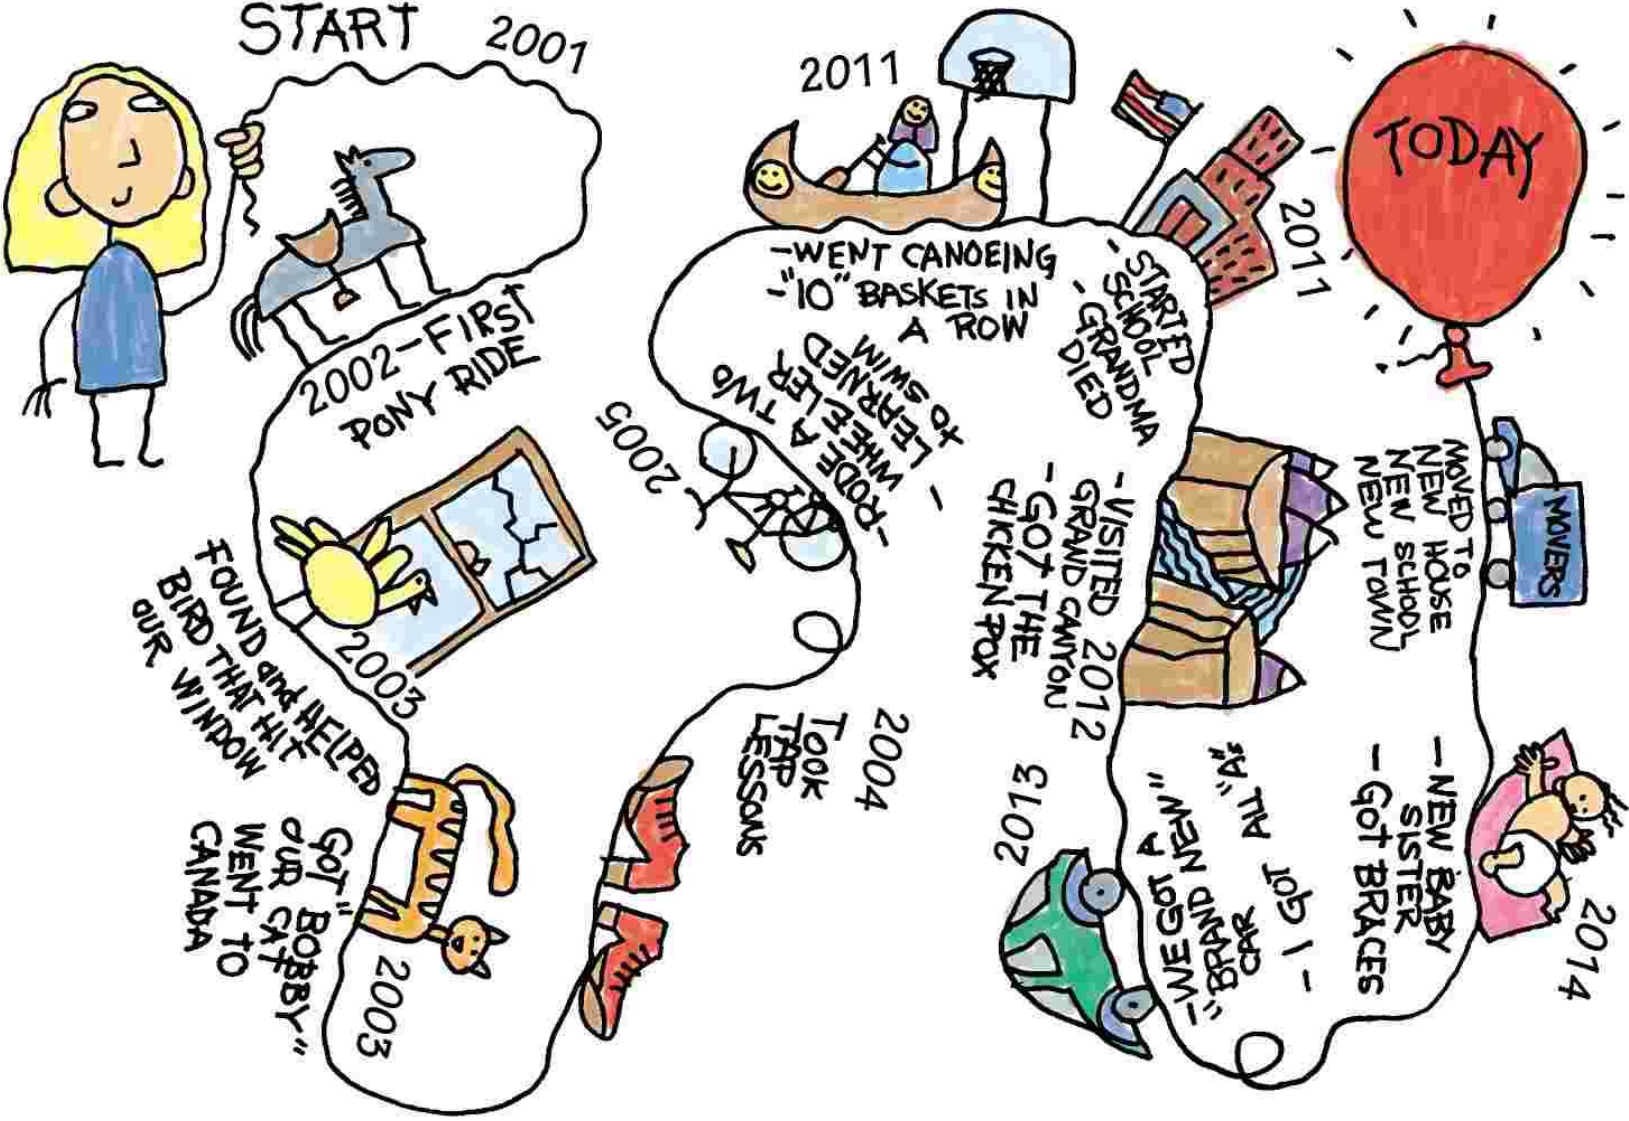 START
2001
2002-FIRST
PONY RIDE
2003
FOUND and HELPED
BIRD THAT HIT
OUR WINDOW
GOT "BOBBY"
OUR CAT
WENT TO
CANADA
2003
2004
TOOK
TAP
LESSONS
2005
-RODE A TWO
WHEELER
- LEARNED
TO SWIM
2011
-WENT CANOEING
-"10" BASKETS IN
A ROW
2011
- STARTED
SCHOOL
- GRANDMA
DIED
-VISITED 2012
GRAND CANYON
-GOT THE
CHICKEN POX
2013
-WE GOT A
"BRAND NEW"
CAR
- I GOT ALL "A's"
2014
-NEW BABY
SISTER
-GOT BRACES
MOVED TO
NEW HOUSE
NEW SCHOOL
NEW TOWN
MOVERS
TODAY